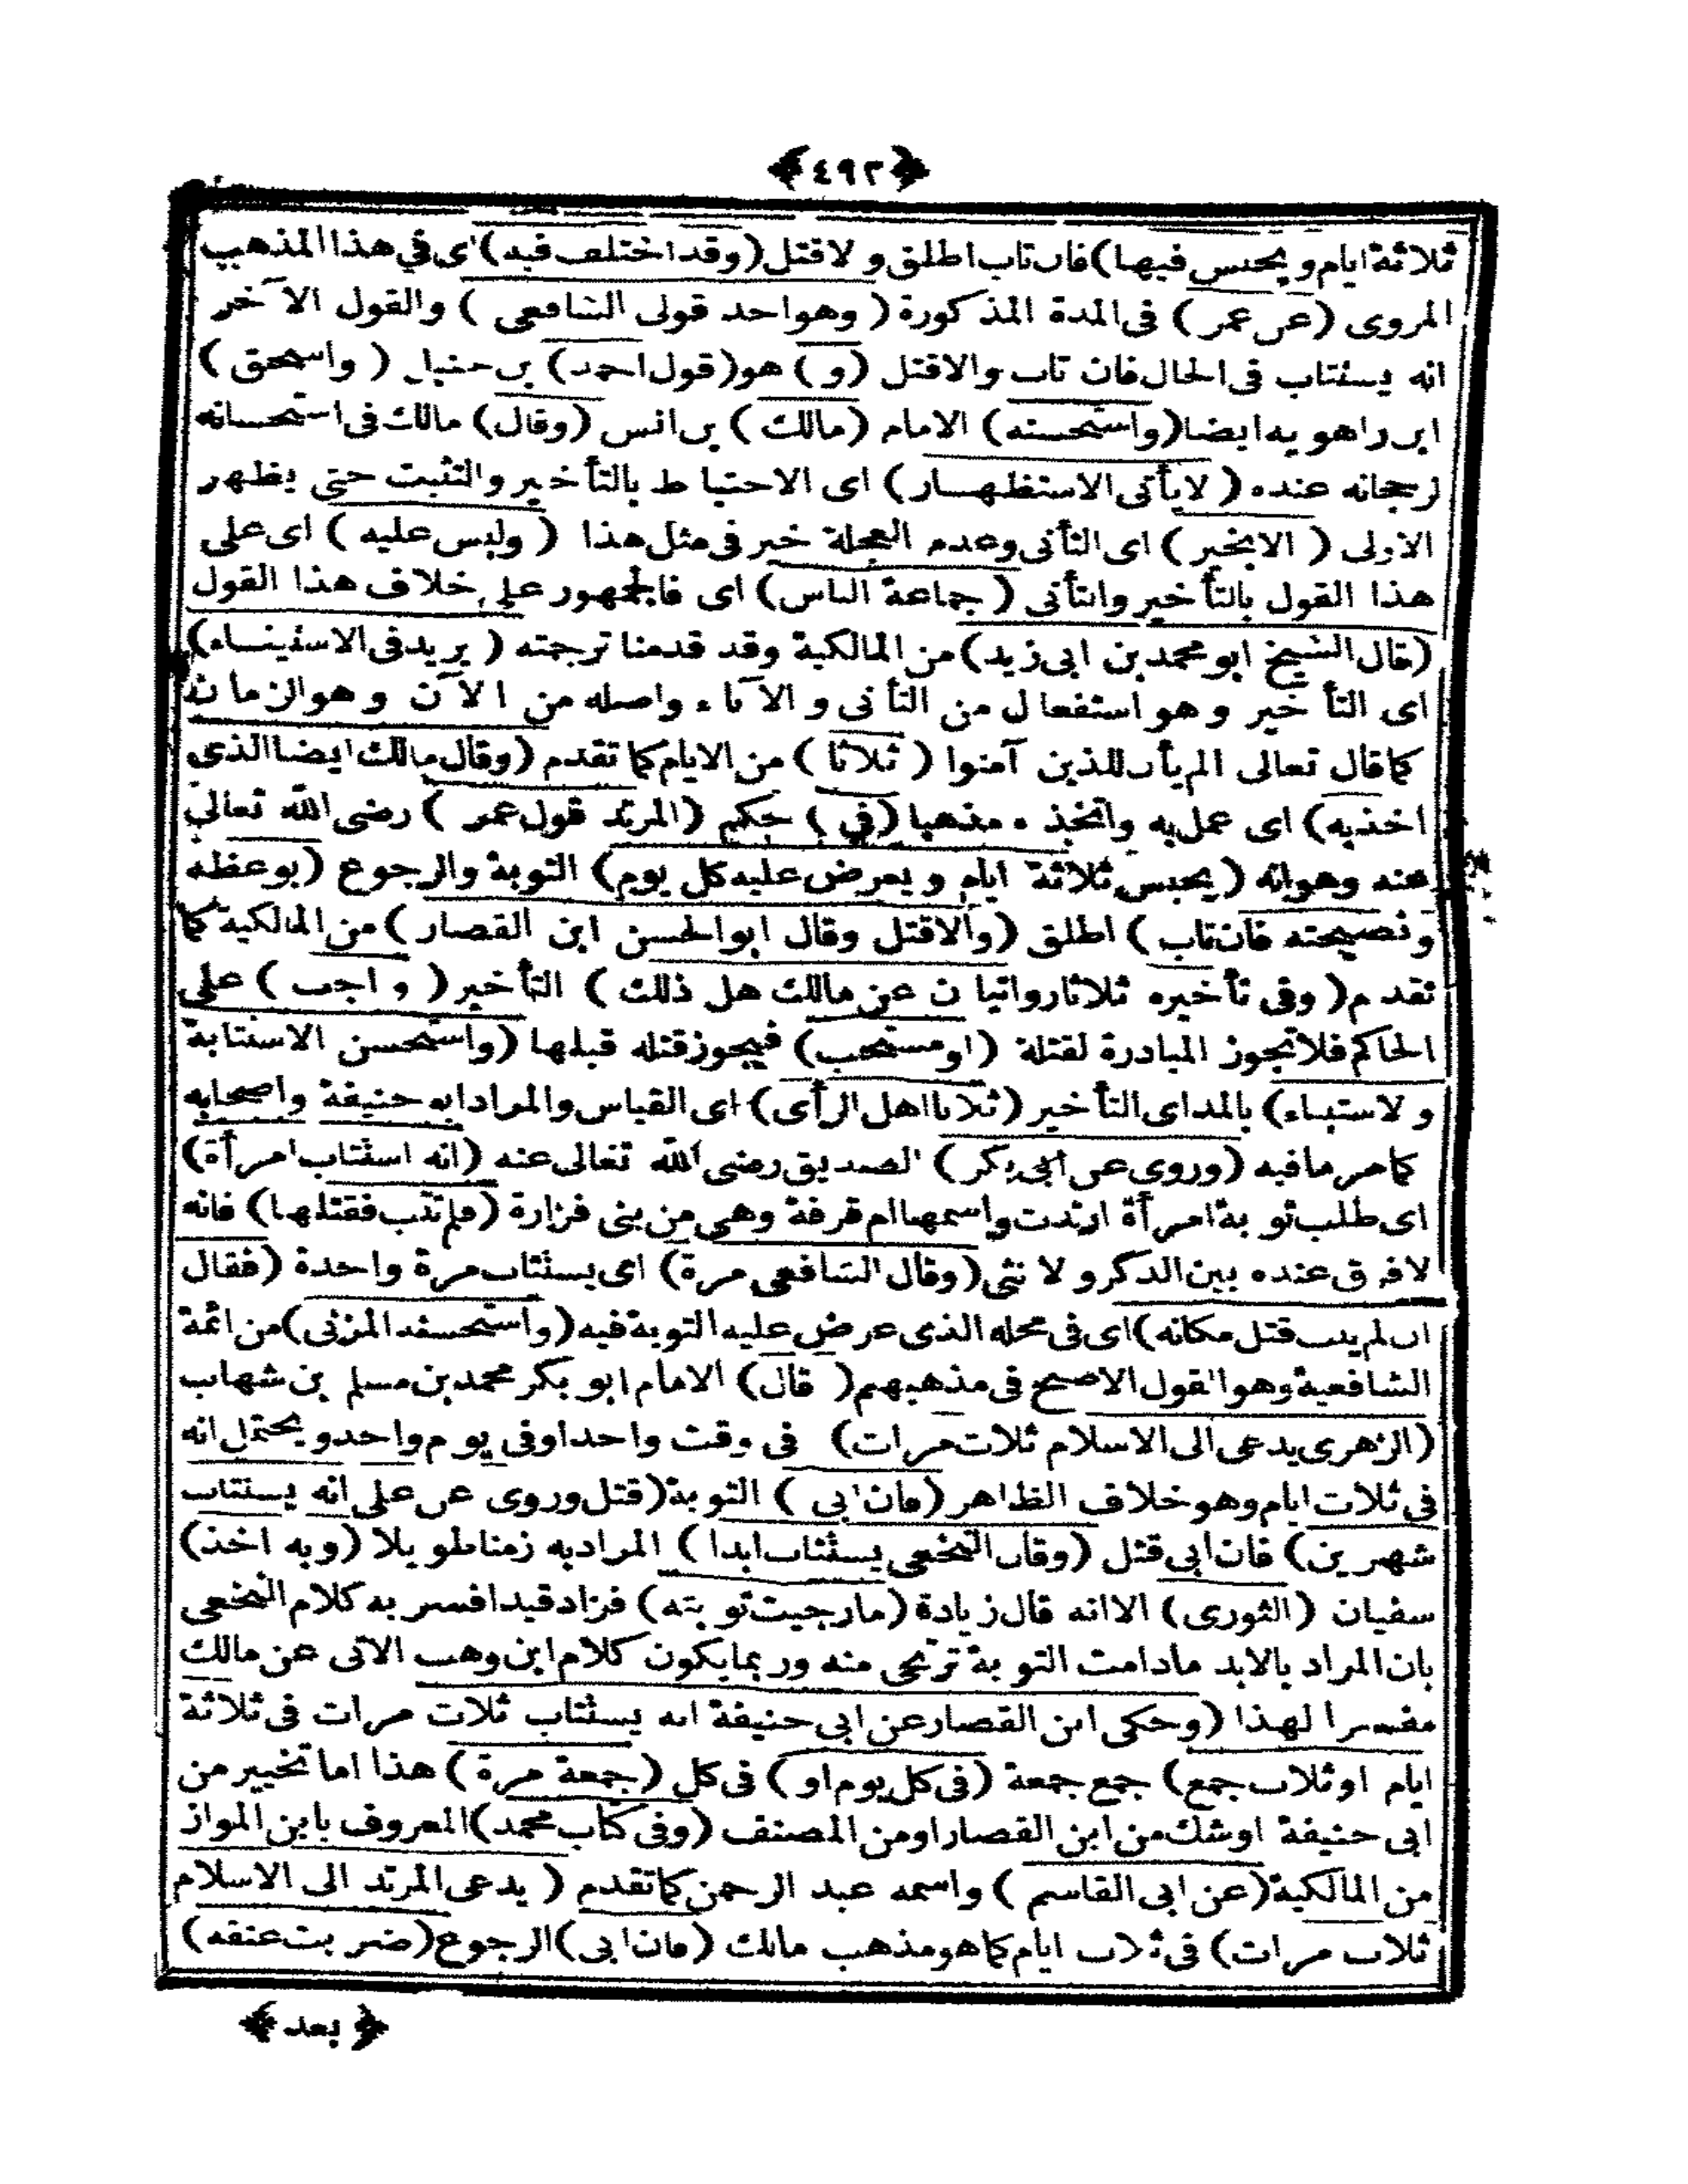 ﴿٤٩٢﴾
ثلاثة ايام ويحبس فيها) فان تاب اطلق والاقتل (وقد اختلف فيه) اى في هذا المذهب
المروى (عن عمر) فى المدة المذكورة (وهو احد قولى الشافعى) والقول الآخر
انه يستتاب فى الحال فان تاب والاقتل (و) هو (قول احمد) بن حنبل (واسحق)
ابن راهويه ايضا (واستحسنه) الامام (مالك) بن انس (وقال) مالك فى استحسانه
لرجحانه عنده (لايأتى الاستظهار) اى الاحتياط بالتأخير والتثبت حتى يظهر
الاولى (الابخير) اى التأنى وعدم العجلة خير فى مثل هذا (وليس عليه) اى على
هذا القول بالتأخير والتأنى (جماعة الناس) اى فالجمهور على خلاف هذا القول
(قال الشيخ ابو محمد بن ابى زيد) من المالكية وقد قدمنا ترجمته (يريد فى الاستيناء)
اى التأخير وهو استفعال من التأنى والآناء واصله من الآن وهو الزمان
كما قال تعالى الم يأن للذين آمنوا (ثلاثا) من الايام كما تقدم (وقال مالك ايضا الذى
اخذ به) اى عمل به واتخذه مذهبا (في) حكم (المرتد قول عمر) رضى الله تعالى
عنه وهوانه (يحبس ثلاثة ايام ويعرض عليه كل يوم) التوبة والرجوع (بوعظه
ونصيحته فان تاب) اطلق (والاقتل وقال ابوالحسن ابن القصار) من المالكية كما
تقدم (وفى تأخيره ثلاثا روايتان عن مالك هل ذلك) التأخير (واجب) على
الحاكم فلا تجوز المبادرة لقتلة (اومستحب) فيجوز قتله قبلها (واستحسن الاستتابة
ولاستيناء) بالمد اى التأخير (ثلاثا اهل الرأى) اى القياس والمراد ابو حنيفة واصحابه
كما مر مافيه (وروى عن ابى بكر) الصديق رضى الله تعالى عنه (انه استتاب امرأة)
اى طلب توبة امرأة ارتدت واسمها ام قرفة وهى من بنى فزارة (فلم تتب فقتلها) فانه
لافرق عنده بين الذكر ولا نثى (وقال الشافعى مرة) اى يستتاب مرة واحدة (فقال
ان لم يتب قتل مكانه) اى فى محله الذى عرض عليه التوبة فيه (واستحسنه المزنى) من ائمة
الشافعية وهو القول الاصح فى مذهبهم (قال) الامام ابو بكر محمد بن مسلم بن شهاب
(الزهرى يدعى الى الاسلام ثلاث مرات) فى وقت واحد اوفى يوم واحد ويحتمل انه
فى ثلاث ايام وهو خلاف الظاهر (فان ابى) التوبة (قتل وروى عن على انه يستتاب
شهرين) فان ابى قتل (وقال النخعى يستتاب ابدا) المراد به زمنا طويلا (وبه اخذ)
سفيان (الثورى) الاانه قال زيادة (مارجيت توبته) فزاد قيدا فسر به كلام النخعى
بان المراد بالابد مادامت التوبة ترتجى منه وربما يكون كلام ابن وهب الاتى عن مالك
مفسرا لهذا (وحكى ابن القصار عن ابى حنيفة انه يستتاب ثلاث مرات فى ثلاثة
ايام اوثلاث جمع) جمع جمعة (فى كل يوم او) فى كل (جمعة مرة) هذا اما تخيير من
ابى حنيفة اوشك من ابن القصار اومن المصنف (وفى كتاب محمد) المعروف بابن المواز
من المالكية (عن ابى القاسم) واسمه عبد الرحمن كما تقدم (يدعى المرتد الى الاسلام
ثلاث مرات) فى ثلاث ايام كما هو مذهب مالك (فان ابى) الرجوع (ضربت عنقه)
﴿بعد﴾